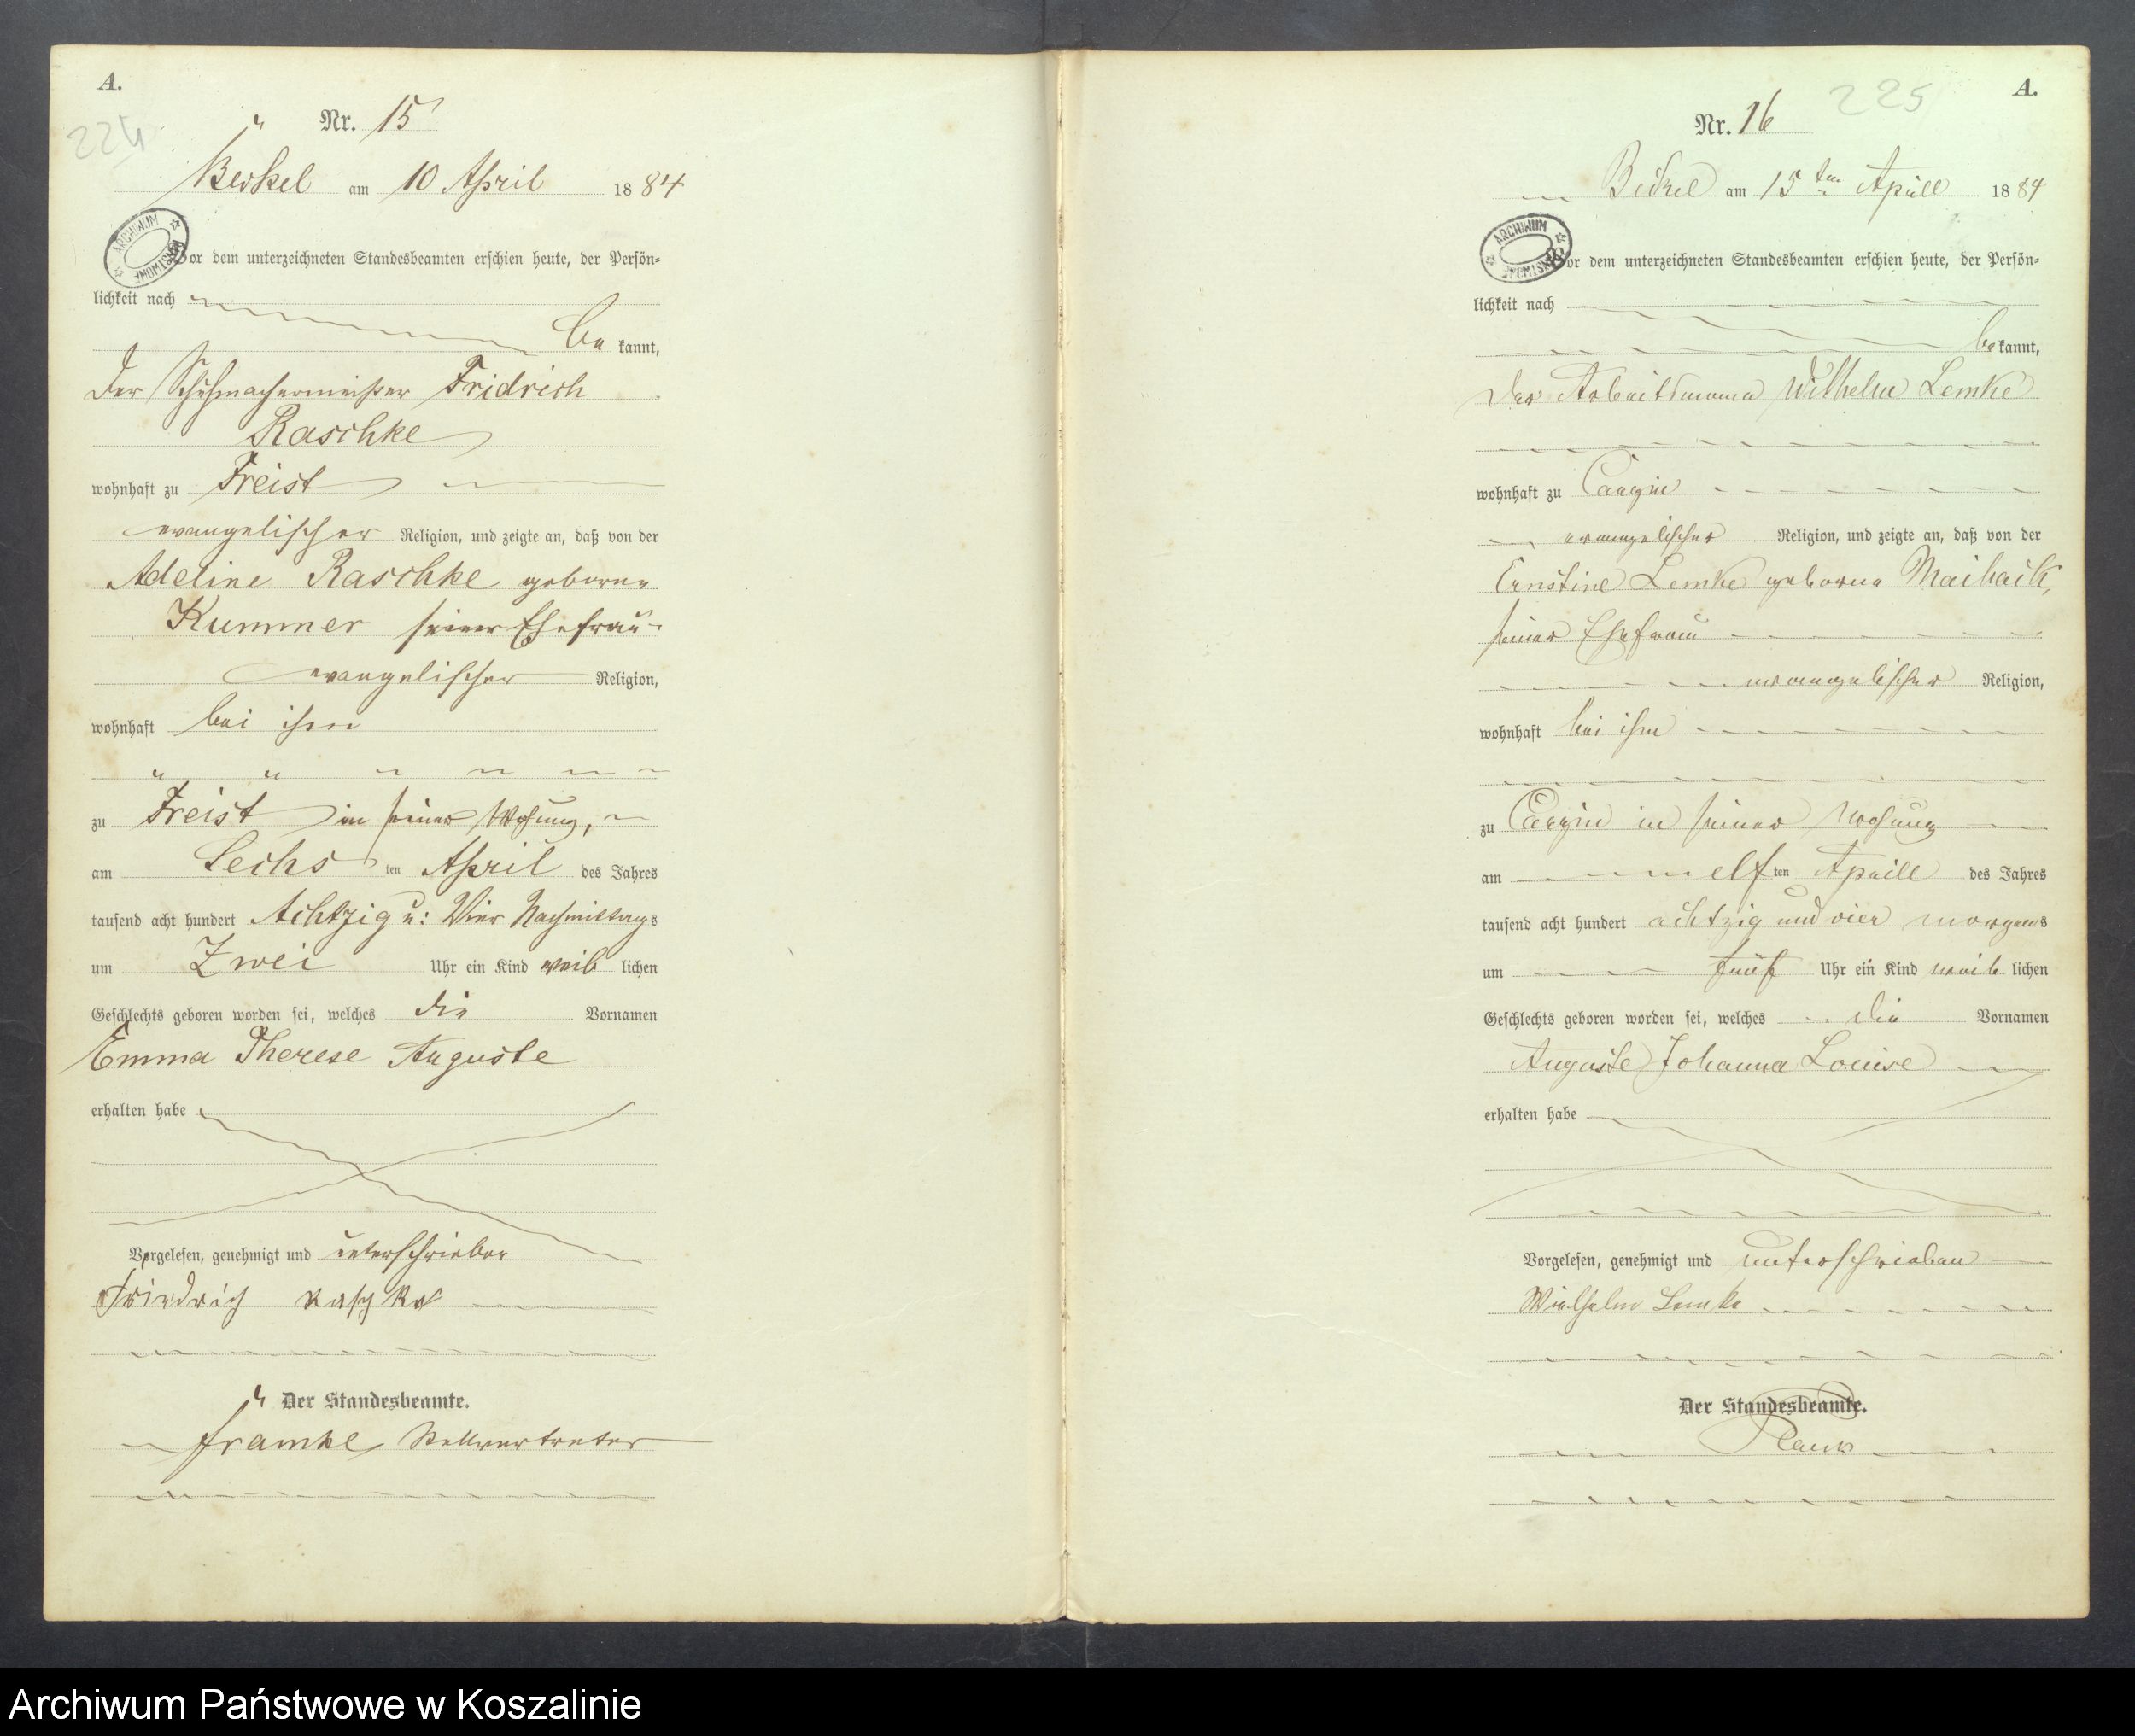 A.
224
Nr. 15
Beckel am 10 April 1884
ARCHIWUM
Vor dem unterzeichneten Standesbeamten erschien heute, der Persön=
lichkeit nach
be kannt,
Der Schuhmachermeister Fridrich
Raschke
wohnhaft zu Freist
evangelischer Religion, und zeigte an, daß von der
Adeline Raschke geborne
Kummer seiner Ehefrau
evangelischer Religion,
wohnhaft bei ihm
zu Freist in seiner Wohung,
am Sechs ten April des Jahres
tausend acht hundert Achtzig u: Vier Nachmittags
um Zwei Uhr ein Kind weib lichen
Geschlechts geboren worden sei, welches die Vornamen
Emma Therese Auguste
erhalten habe
Vorgelesen, genehmigt und unterschrieben
Friedrich Raschke
Der Standesbeamte.
Framke Stellvertreter
A.
225
Nr. 16
Beckel am 15ten Aprill 1884
ARCHIWUM
Vor dem unterzeichneten Standesbeamten erschien heute, der Persön=
lichkeit nach
be kannt,
Der Arbeitsmann Wilhelm Lemke
wohnhaft zu
evangelischer Religion, und zeigte an, daß von der
Ernstine Lemke geborne
seiner Ehefrau
evangelischer Religion,
wohnhaft bei ihm
zu in seiner Wohung
am elf ten Aprill des Jahres
tausend acht hundert achtzig und vier morgens
um fünf Uhr ein Kind weib lichen
Geschlechts geboren worden sei, welches die Vornamen
Auguste Johanna Louise
erhalten habe
Vorgelesen, genehmigt und unterschrieben
Wielhelm Lemke
Der Standesbeamte.
Archiwum Państwowe w Koszalinie